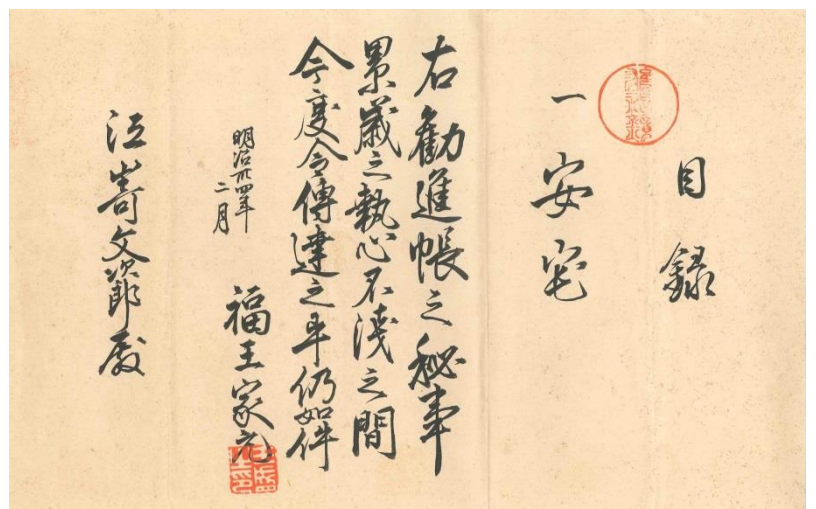 目録
一 安宅
右勧進帳之秘事
累歳之執心不浅之間
今度令傳達之畢仍如件
明治卅四年
二月
福王家元
江嵜文次郎殿